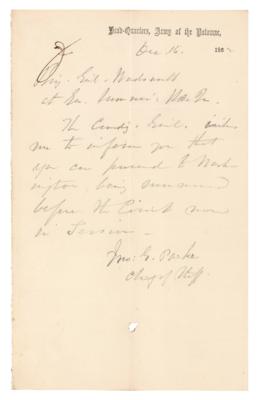 Head-Quarters, Army of the Potomac,
Dec 16. 1862
Brig. Genl. Wadsworth
at Gen. Sumner's Hd. Qrs.
The Comdg. Genl. wishes
me to inform you that
you can proceed to Wash
ington, being summoned
before the Court now
in Session.
Jno. G. Parke
Chief of Staff